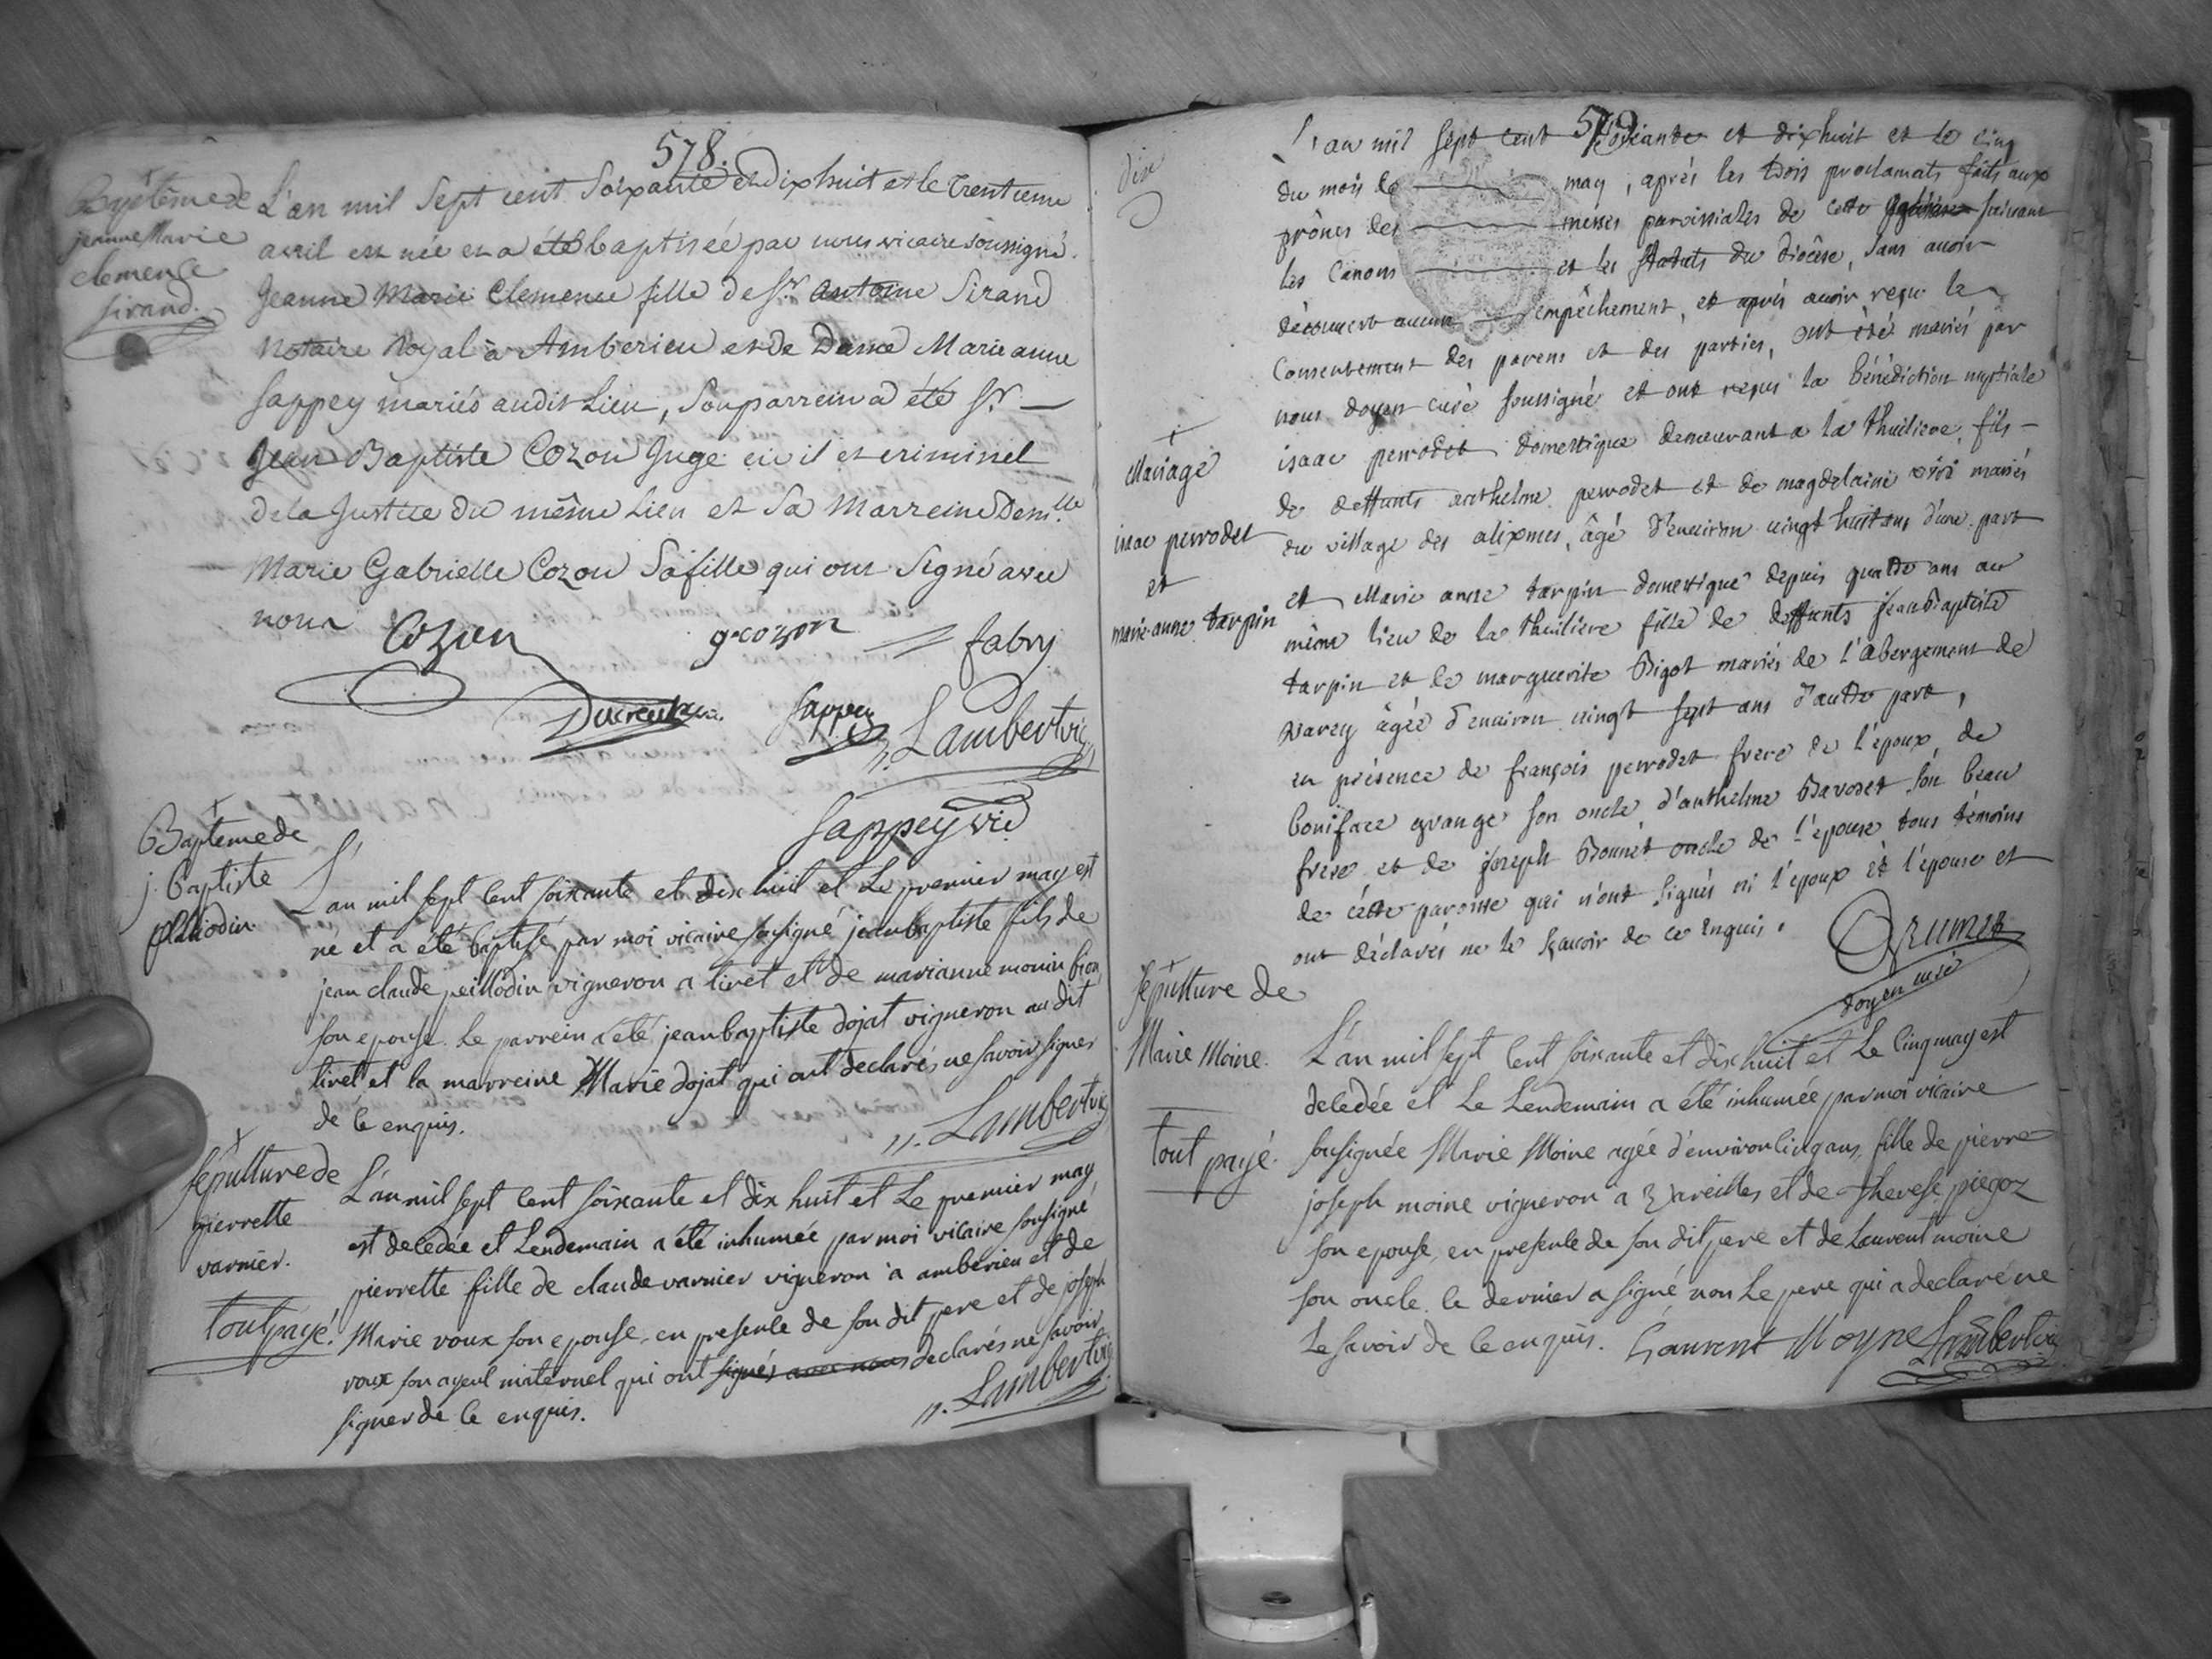 578.
Baptême de
jeanne Marie
clemence
sirand.
L'an mil Sept cent Soixante et dix huit et le trentieme
avril est née et a été baptisée par nous vicaire soussigné.
Jeanne Marie Clemence fille de Sr. Antoine Sirand
Notaire Royal à Amberieu et de Dame Marie anne
Sappey mariés audit Lieu, Son parrein a été Sr.
Jean Baptiste Cozon Juge civil et criminel
de la Justice du même Lieu et Sa Marreine Demlle
Marie Gabrielle Cozon Sa fille qui ont Signé avec
nous
Cozon g. cozon fabry
Sappey Lambert vic
Sappey vic
Bapteme de
j. baptiste
L'an mil sept cent soixante et dix huit et Le premier may est
né et a été baptisé par moi vicaire sousigné jean baptiste fils de
jean claude peillodin vigneron a tiret et de marianne monin bion
son epouse. Le parrein a été jean baptiste dojat vigneron au dit
tiret et la marreine Marie dojat qui ont declarés ne savoir signer
de ce enquis.
Lambert vic
sépulture de
pierrette
varnier.
tout payé.
L'an mil sept cent soixante et dix huit et Le premier may
est decedée et Lendemain a été inhumée par moi vicaire sousigné
pierrette fille de claude varnier vigneron à amberieu et de
Marie roux son epouse, en presence de son dit pere et de joseph
roux son ayeul maternel qui ont signés avec nous declarés ne savoir
signer de ce enquis.
Lambert vic
579
dix
L'an mil sept cent soixante et dix huit et le cinq
du mois de may, après les trois proclamats faits aux
prônes des messes paroissiales de cette suivant
les Canons et les statuts du diocèse, sans avoir
découvert aucun empêchement, et après avoir reçu le
Consentement des parens et des parties, ont été mariés par
nous doyen curé soussigné et ont reçus la bénédiction nuptiale
Mariage
isaac perrodet
et
marie-anne tarpin
isaac perrodet domestique demeurant a la thuiliere, fils
de deffunts anthelme perrodet et de magdelaine mariés
du village des alixmes, âgé d'environ vingt huit ans d'une part
et Marie anne tarpin domestique depuis quatre ans au
même lieu de la thuiliere fille de deffunts jean baptiste
tarpin et de marguerite Bigot mariés de l'abergement de
varey âgée d'environ vingt sept ans d'autre part,
en présence de françois perrodet frere de l'epoux, de
boniface grange son oncle, d'anthelme Bavoset son beau
frere et de joseph Bonnet oncle de l'epouse tous témoins
de cette paroisse qui n'ont signés ni l'epoux et l'epouse et
ont déclarés ne le sçavoir de ce enquis.
doyen curé
sépulture de
Marie Moine.
tout payé.
L'an mil sept cent soixante et dix huit et Le cinq may est
decedée et Le Lendemain a été inhumée par moi vicaire
sousignée Marie Moine agée d'environ cinq ans, fille de pierre
joseph moine vigneron a Vareilles et de therese piegoz
son epouse, en presence de son dit pere et de Laurent moine
son oncle. ce dernier a signé non Le pere qui a declaré ne
Le savoir de ce enquis. Laurent Moyne Lambert vic